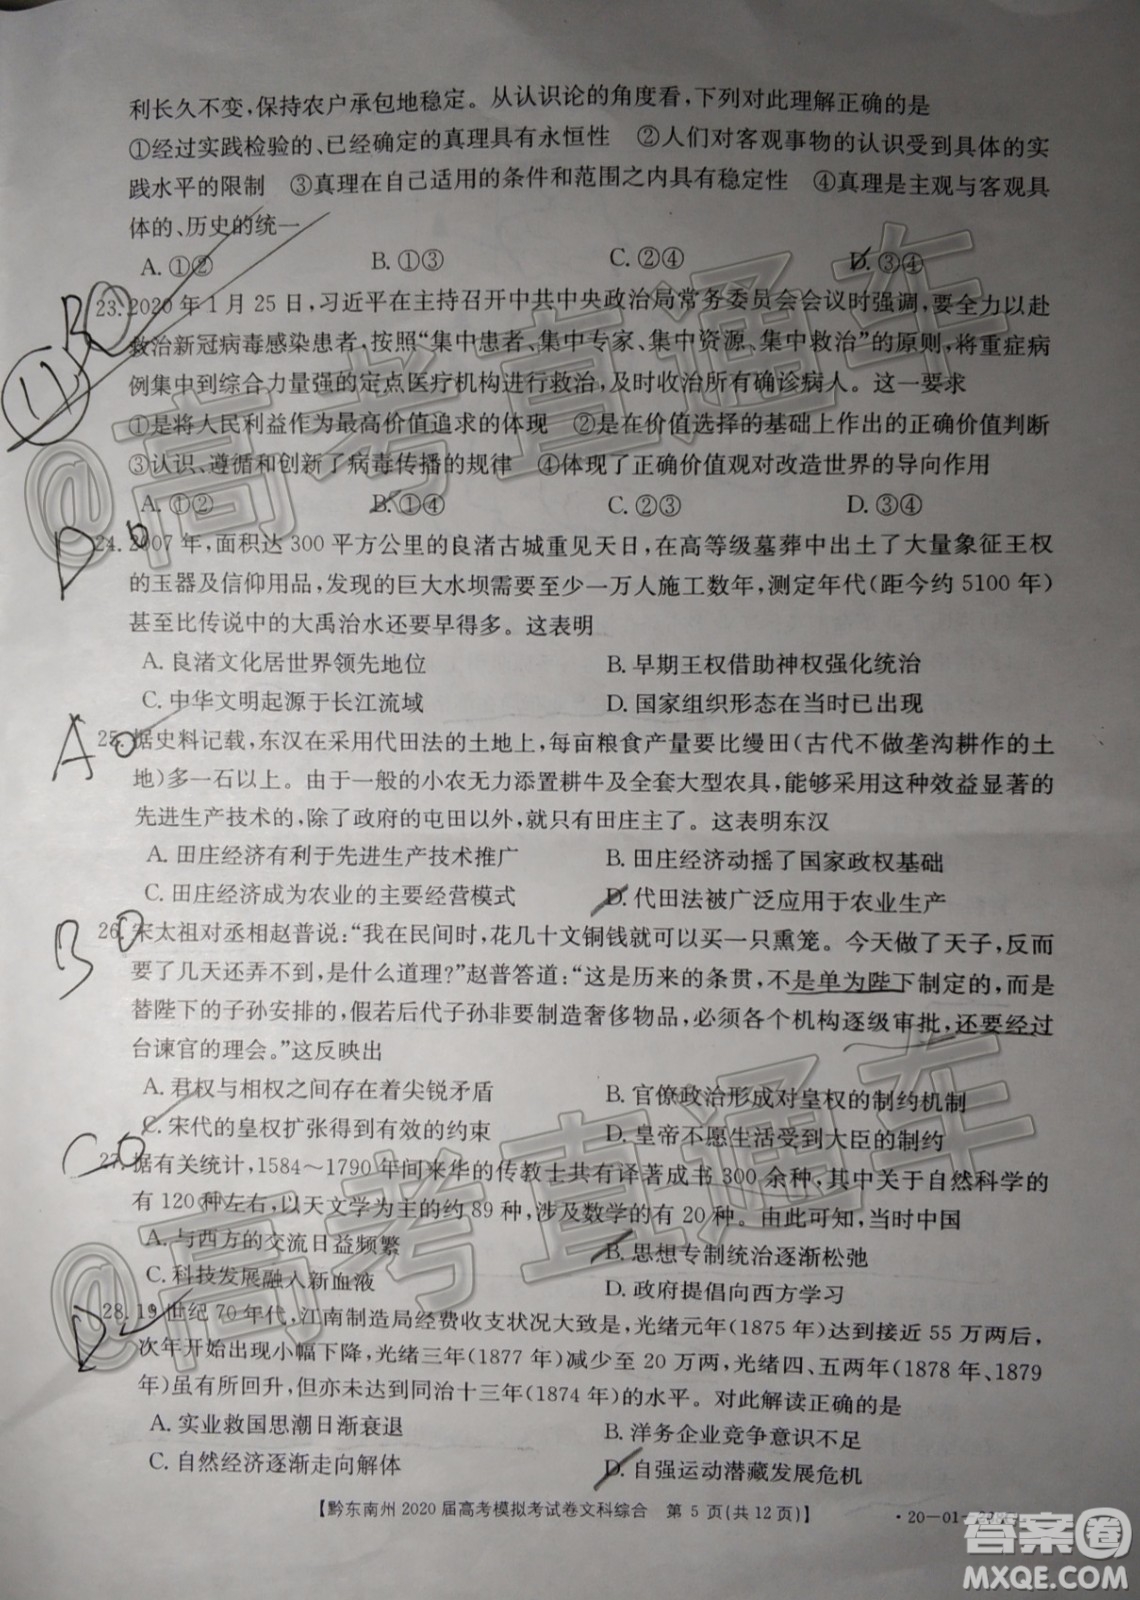 利长久不变,保持农户承包地稳定。从认识论的角度看,下列对此理解正确的是
①经过实践检验的、已经确定的真理具有永恒性　②人们对客观事物的认识受到具体的实
践水平的限制　③真理在自己适用的条件和范围之内具有稳定性　④真理是主观与客观具
体的、历史的统一
A. ①②　B. ①③　C. ②④　D. ③④
23. 2020 年 1 月 25 日,习近平在主持召开中共中央政治局常务委员会会议时强调,要全力以赴
救治新冠病毒感染患者,按照“集中患者、集中专家、集中资源、集中救治”的原则,将重症病
例集中到综合力量强的定点医疗机构进行救治,及时收治所有确诊病人。这一要求
①是将人民利益作为最高价值追求的体现　②是在价值选择的基础上作出的正确价值判断
③认识、遵循和创新了病毒传播的规律　④体现了正确价值观对改造世界的导向作用
A. ①②　B. ①④　C. ②③　D. ③④
24. 2007 年,面积达 300 平方公里的良渚古城重见天日,在高等级墓葬中出土了大量象征王权
的玉器及信仰用品,发现的巨大水坝需要至少一万人施工数年,测定年代(距今约 5100 年)
甚至比传说中的大禹治水还要早得多。这表明
A. 良渚文化居世界领先地位　B. 早期王权借助神权强化统治
C. 中华文明起源于长江流域　D. 国家组织形态在当时已出现
25. 据史料记载,东汉在采用代田法的土地上,每亩粮食产量要比缦田(古代不做垄沟耕作的土
地)多一石以上。由于一般的小农无力添置耕牛及全套大型农具,能够采用这种效益显著的
先进生产技术的,除了政府的屯田以外,就只有田庄主了。这表明东汉
A. 田庄经济有利于先进生产技术推广　B. 田庄经济动摇了国家政权基础
C. 田庄经济成为农业的主要经营模式　D. 代田法被广泛应用于农业生产
26. 宋太祖对丞相赵普说:“我在民间时,花几十文铜钱就可以买一只熏笼。今天做了天子,反而
要了几天还弄不到,是什么道理?”赵普答道:“这是历来的条贯,不是单为陛下制定的,而是
替陛下的子孙安排的,假若后代子孙非要制造奢侈物品,必须各个机构逐级审批,还要经过
台谏官的理会。”这反映出
A. 君权与相权之间存在着尖锐矛盾　B. 官僚政治形成对皇权的制约机制
C. 宋代的皇权扩张得到有效的约束　D. 皇帝不愿生活受到大臣的制约
27. 据有关统计,1584～1790 年间来华的传教士共有译著成书 300 余种,其中关于自然科学的
有 120 种左右,以天文学为主的约 89 种,涉及数学的有 20 种。由此可知,当时中国
A. 与西方的交流日益频繁　B. 思想专制统治逐渐松弛
C. 科技发展融入新血液　D. 政府提倡向西方学习
28. 19 世纪 70 年代,江南制造局经费收支状况大致是,光绪元年(1875 年)达到接近 55 万两后,
次年开始出现小幅下降,光绪三年(1877 年)减少至 20 万两,光绪四、五两年(1878 年、1879
年)虽有所回升,但亦未达到同治十三年(1874 年)的水平。对此解读正确的是
A. 实业救国思潮日渐衰退　B. 洋务企业竞争意识不足
C. 自然经济逐渐走向解体　D. 自强运动潜藏发展危机
【黔东南州 2020 届高考模拟考试卷文科综合　第 5 页(共 12 页)】　·20－01－
B
11
D
A
B
C
D
@高考直通车
@高考直通车
答案圈
MXQE.COM